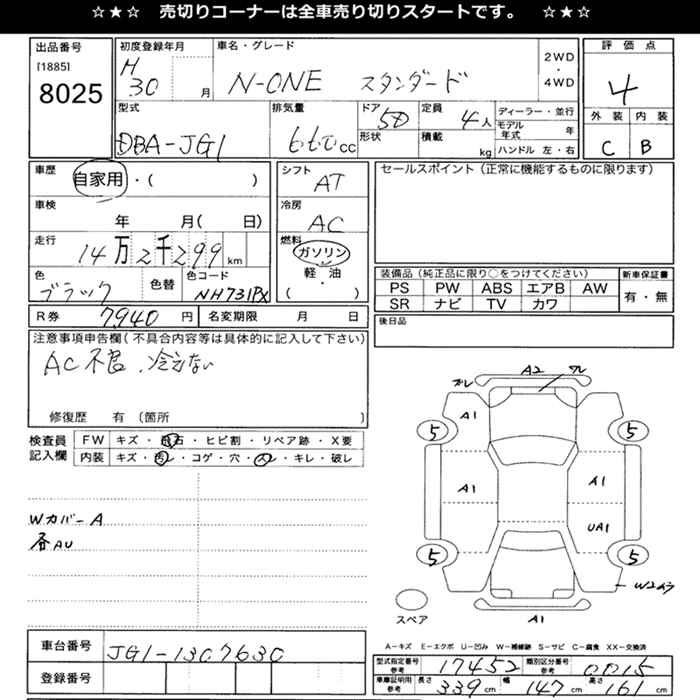 ☆★☆ 売切りコーナーは全車売り切りスタートです。 ☆★☆
出品番号
[1885]
8025
初度登録年月
H 30 月
車名・グレード
N-ONE スタンダード
2WD
・
4WD
評価点
4
外装 内装
C B
型式
DBA-JG1
排気量
660 cc
ドア 5D
形状
定員 4人
積載 kg
ディーラー・並行
モデル年式 年
ハンドル 左・右
車歴 自家用・( )
シフト AT
セールスポイント(正常に機能するものに限ります)
車検 年 月( 日)
冷房 AC
走行 14万2千299km
燃料 ガソリン
軽・油
( )
色 ブラック
色替
色コード NH731PX
装備品(純正品に限り○をつけてください)
PS PW ABS エアB AW
SR ナビ TV カワ
新車保証書
有・無
R券 7,940 円
名変期限 月 日
後日品
注意事項申告欄(不具合内容等は具体的に記入して下さい)
AC不良、冷えない
修復歴 有 (箇所 )
検査員
記入欄
FW キズ・飛石・ヒビ割・リペア跡・X要
内装 キズ・汚レ・コゲ・穴・スレ・キレ・破レ
Wカバー A
各AU
A2
A1
5
5
A1
A1
UA1
5
5
スペア
A1
A-キズ E-エクボ U-凹み W-補修跡 S-サビ C-腐食 XX-交換済
車台番号 JG1-1307630
登録番号
型式指定番号 参考 17452
類別区分番号 参考 0015
車庫証明用 参考 長さ 339cm 幅 147cm 高さ 161cm